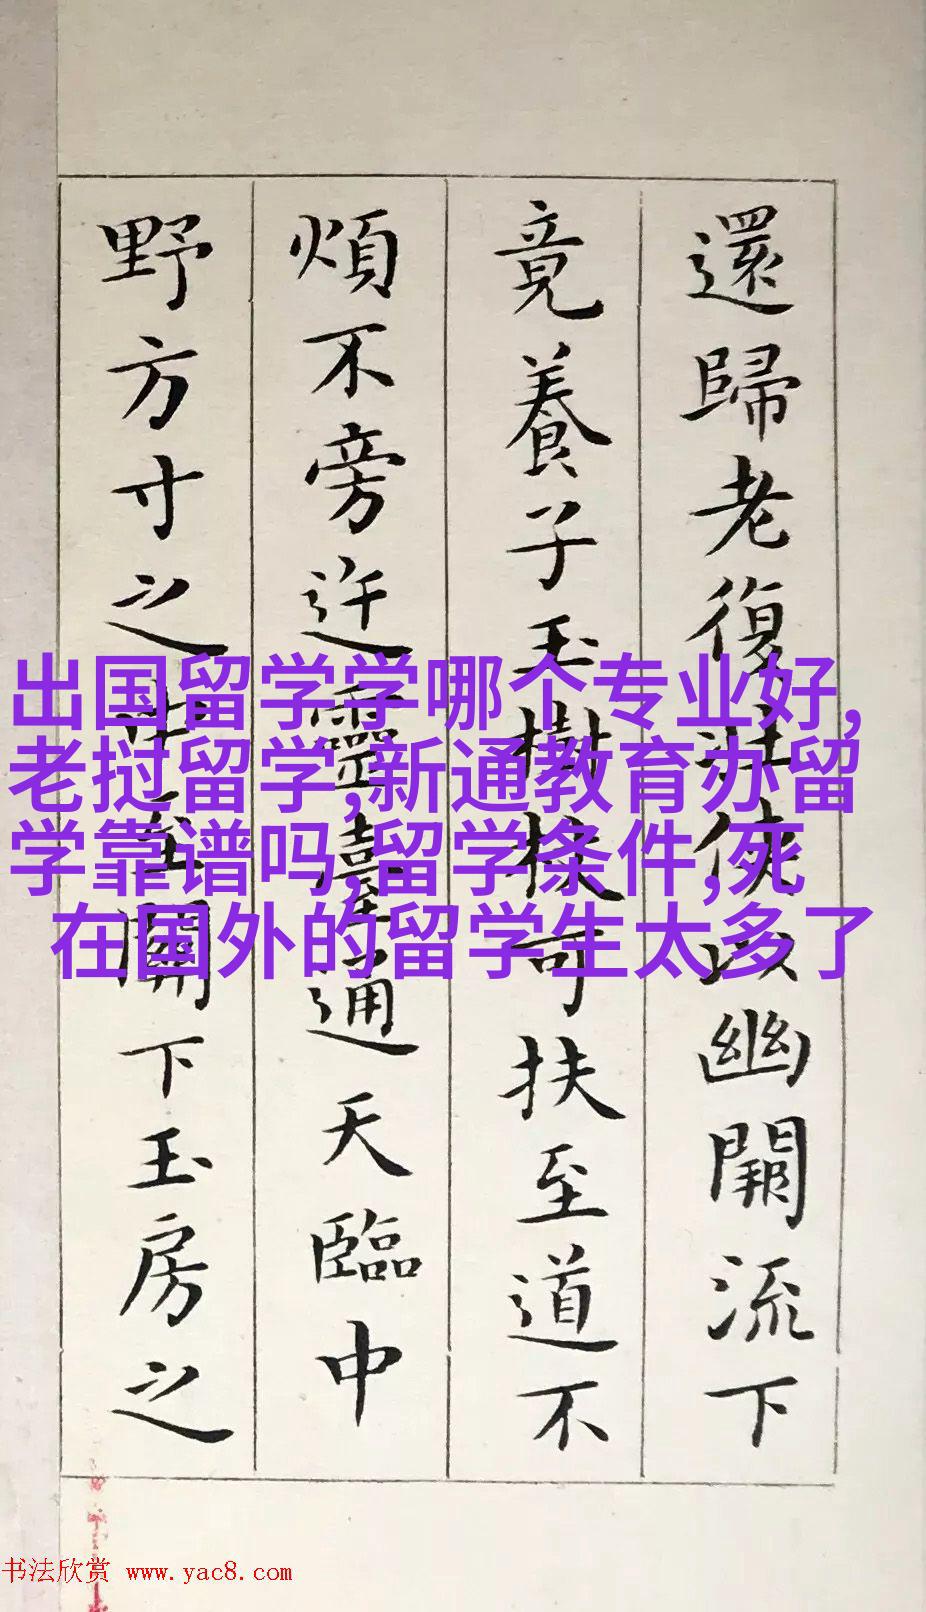 還歸老復壯俠以幽闕流下
竟養子玉樹杖可扶至道不
煩不旁迕靈臺通天臨中
野方寸之中至關下玉房之
出国留学学哪个专业好,
老挝留学,新通教育办留
学靠谱吗,留学条件,死
在国外的留学生太多了
书法欣赏 www.yac8.com